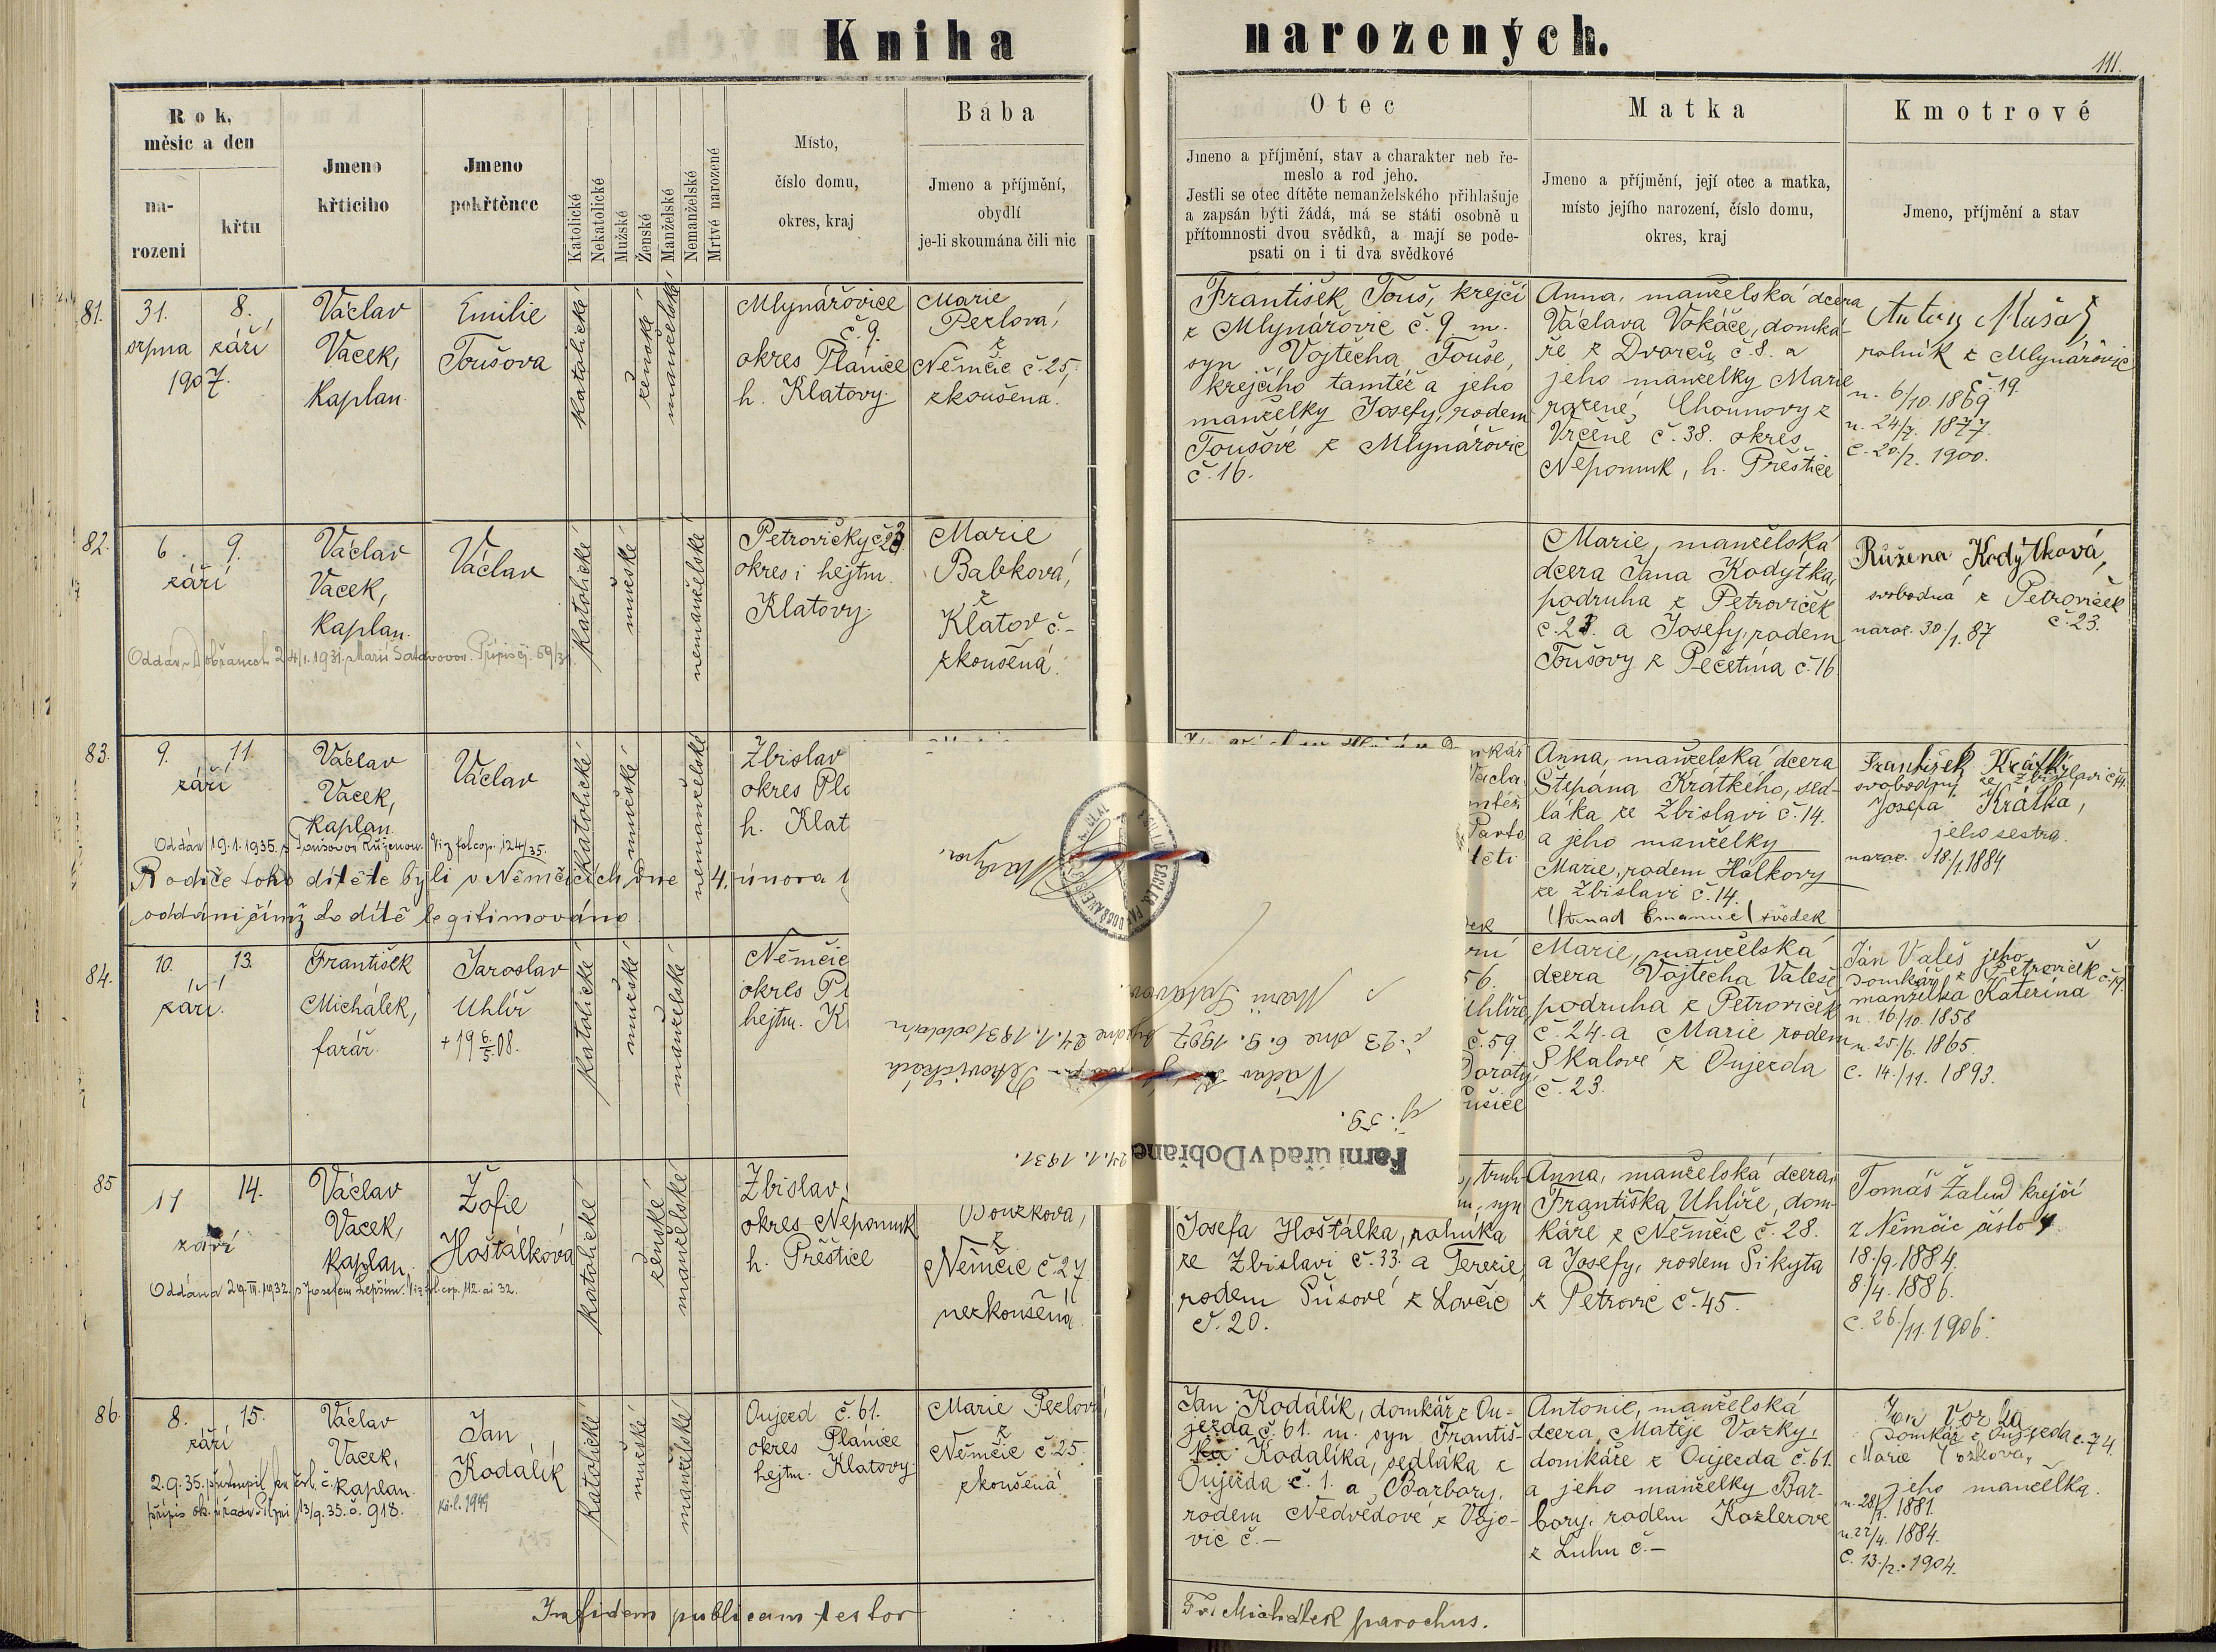 Kniha narozených.
111.
Rok,
měsíc a den
na-
rození
křtu
Jmeno
křticího
Jmeno
pokřtěnce
Katolické
Nekatolické
Mužské
Ženské
Manželské
Nemanželské
Mrtvé narozené
Místo,
číslo domu,
okres, kraj
Bába
Jmeno a příjmění,
obydlí
je-li skoumána čili nic
Otec
Jmeno a příjmění, stav a charakter neb ře-
meslo a rod jeho.
Jestli se otec dítěte nemanželského přihlašuje
a zapsán býti žádá, má se státi osobně u
přítomnosti dvou svědků, a mají se pode-
psati on i ti dva svědkové
Matka
Jmeno a příjmění, její otec a matka,
místo jejího narození, číslo domu,
okres, kraj
Kmotrové
Jmeno, příjmění a stav
81.
31. 8.
srpna září
1907.
Václav
Vacek,
kaplan.
Emilie
Toušova
katolické
ženské
manželské
Mlynářovice
č. 9.
okres Plánice
h. Klatovy.
Marie
Pezlová,
z
Němčic č. 25,
zkoušená.
František Touš, krejčí
z Mlynářovic č. 9. m.
syn Vojtěcha Touše,
krejčího tamtéž a jeho
manželky Josefy, rodem
Toušové z Mlynářovic
č. 16.
Anna, manželská dcera
Václava Vokáče, domká-
ře z Dvorců č. 8. a
jeho manželky Marie
rozené Chounovy z
Vrčeně č. 38. okres
Nepomuk, h. Přeštice
Antonín
rolník z Mlynářovic
č. 19
n. 6/10. 1869
n. 24/7. 1877.
c. 20/2. 1900.
82.
6. 9.
září
Václav
Vacek,
kaplan.
Václav
katolické
mužské
nemanželské
Petrovičky č. 23
okres i hejtm.
Klatovy.
Marie
Babková,
z
Klatov č. –
zkoušená.
Marie, manželská
dcera Jana Kodytka,
podruha z Petroviček
č. 23. a Josefy, rodem
Toušovy z Pečetína č. 16
Růžena Kodýtková,
svobodná z Petroviček
č. 23.
naroz. 30./1. 87
Oddán v Dobřanech 24/1. 1931 s Marií Satavovou. Přípis čj. 59/31.
83.
9. 11.
září
Václav
Vacek,
kaplan.
Václav
katolické
mužské
nemanželské
Žbislav
okres Plá
h. Klat
Anna, manželská dcera
Štěpána Krátkého, sed-
láka ze Žbislavi č. 14.
a jeho manželky
Marie, rodem Hálkovy
ze Žbislavi č. 14.
Emanuel svědek
František Krátký,
svobodný ze Žbislavi č. 14.
Josefa Krátká,
jeho sestra.
naroz. 18./1. 1884
Oddán 19. 1. 1935. s Toušovou Růženou. Viz fol. cop. 124/35.
Rodiče toho dítěte byli v Němčicích dne 4. února
oddáni čímž to dítě legitimováno
84.
10. 13.
září.
František
Michálek,
farář.
Jaroslav
Uhlíř
+ 19 6/5. 08.
katolické
mužské
manželské
Němčic
okres Pl
hejtm. K
Uhlíře,
č. 59.
Doroty,
Marie, manželská
dcera Vojtěcha Valeše
podruha z Petroviček
č. 24. a Marie rodem
Skalové z Oujezda
č. 23.
Jan Valeš jeho
domkář z Petroviček č. 19.
manželka Kateřina
n. 16/10. 1858
n. 25./6. 1865.
c. 14./11. 1893.
Farní úřad v Dobřane
24. 1. 1931.
č. 59.
Václav
v Petrovičkách
č. 23 dne 6. 9. 1907 byl dne 24. 1. 1931 oddán
s Marií Satavou.
85
11 14.
září
Václav
Vacek,
kaplan.
Žofie
Hoštálková
katolické
ženské
manželské
Žbislav
okres Nepomuk
h. Přeštice
Bouzkova,
z
Němčic č. 27
nezkoušená.
truh-
m. syn
Josefa Hoštálka, rolníka
ze Žbislavi č. 33. a Terezie,
rodem Šůsové z Lovčic
č. 20.
Anna, manželská dcera
Františka Uhlíře, dom-
káře z Němčic č. 28.
a Josefy, rodem Sikyta
z Petrovic č. 45.
Tomáš Žalud krejčí
z Němčic číslo 4
18./9. 1884.
8./4. 1886.
c. 26./11. 1906.
Oddána 29. III. 1932. s Josefem Lepším. Viz fol. cop. 112. ai 32.
86.
8. 15.
září
Václav
Vacek,
kaplan.
Jan
Kodálík
katolické
mužské
manželské
Oujezd č. 61.
okres Plánice
hejtm. Klatovy.
Marie Pezlová,
z
Němčic č. 25.
zkoušená
Jan Kodálík, domkář z Ou-
jezda č. 61. m. syn Františ-
ka Kodalíka, sedláka z
Oujezda č. 1. a Barbory,
rodem Nedvědové z Vojo-
vic č. –
Antonie, manželská
dcera Matěje Vozky,
domkáře z Oujezda č. 61.
a jeho manželky Bar-
bory, rodem Kozlerove
z Luhu č. –
Jan Vozka
domkář z Oujezda č. 74
Marie Vozkova,
jeho manželka.
n. 28/1. 1881.
n. 22/4. 1884.
c. 13./2. 1904.
2. 9. 35. přestoupil
přípis ok. úřadu v Plzni 13/9. 35. č. 918.
In fidem publicam testor
Fr. Michálek parochus.